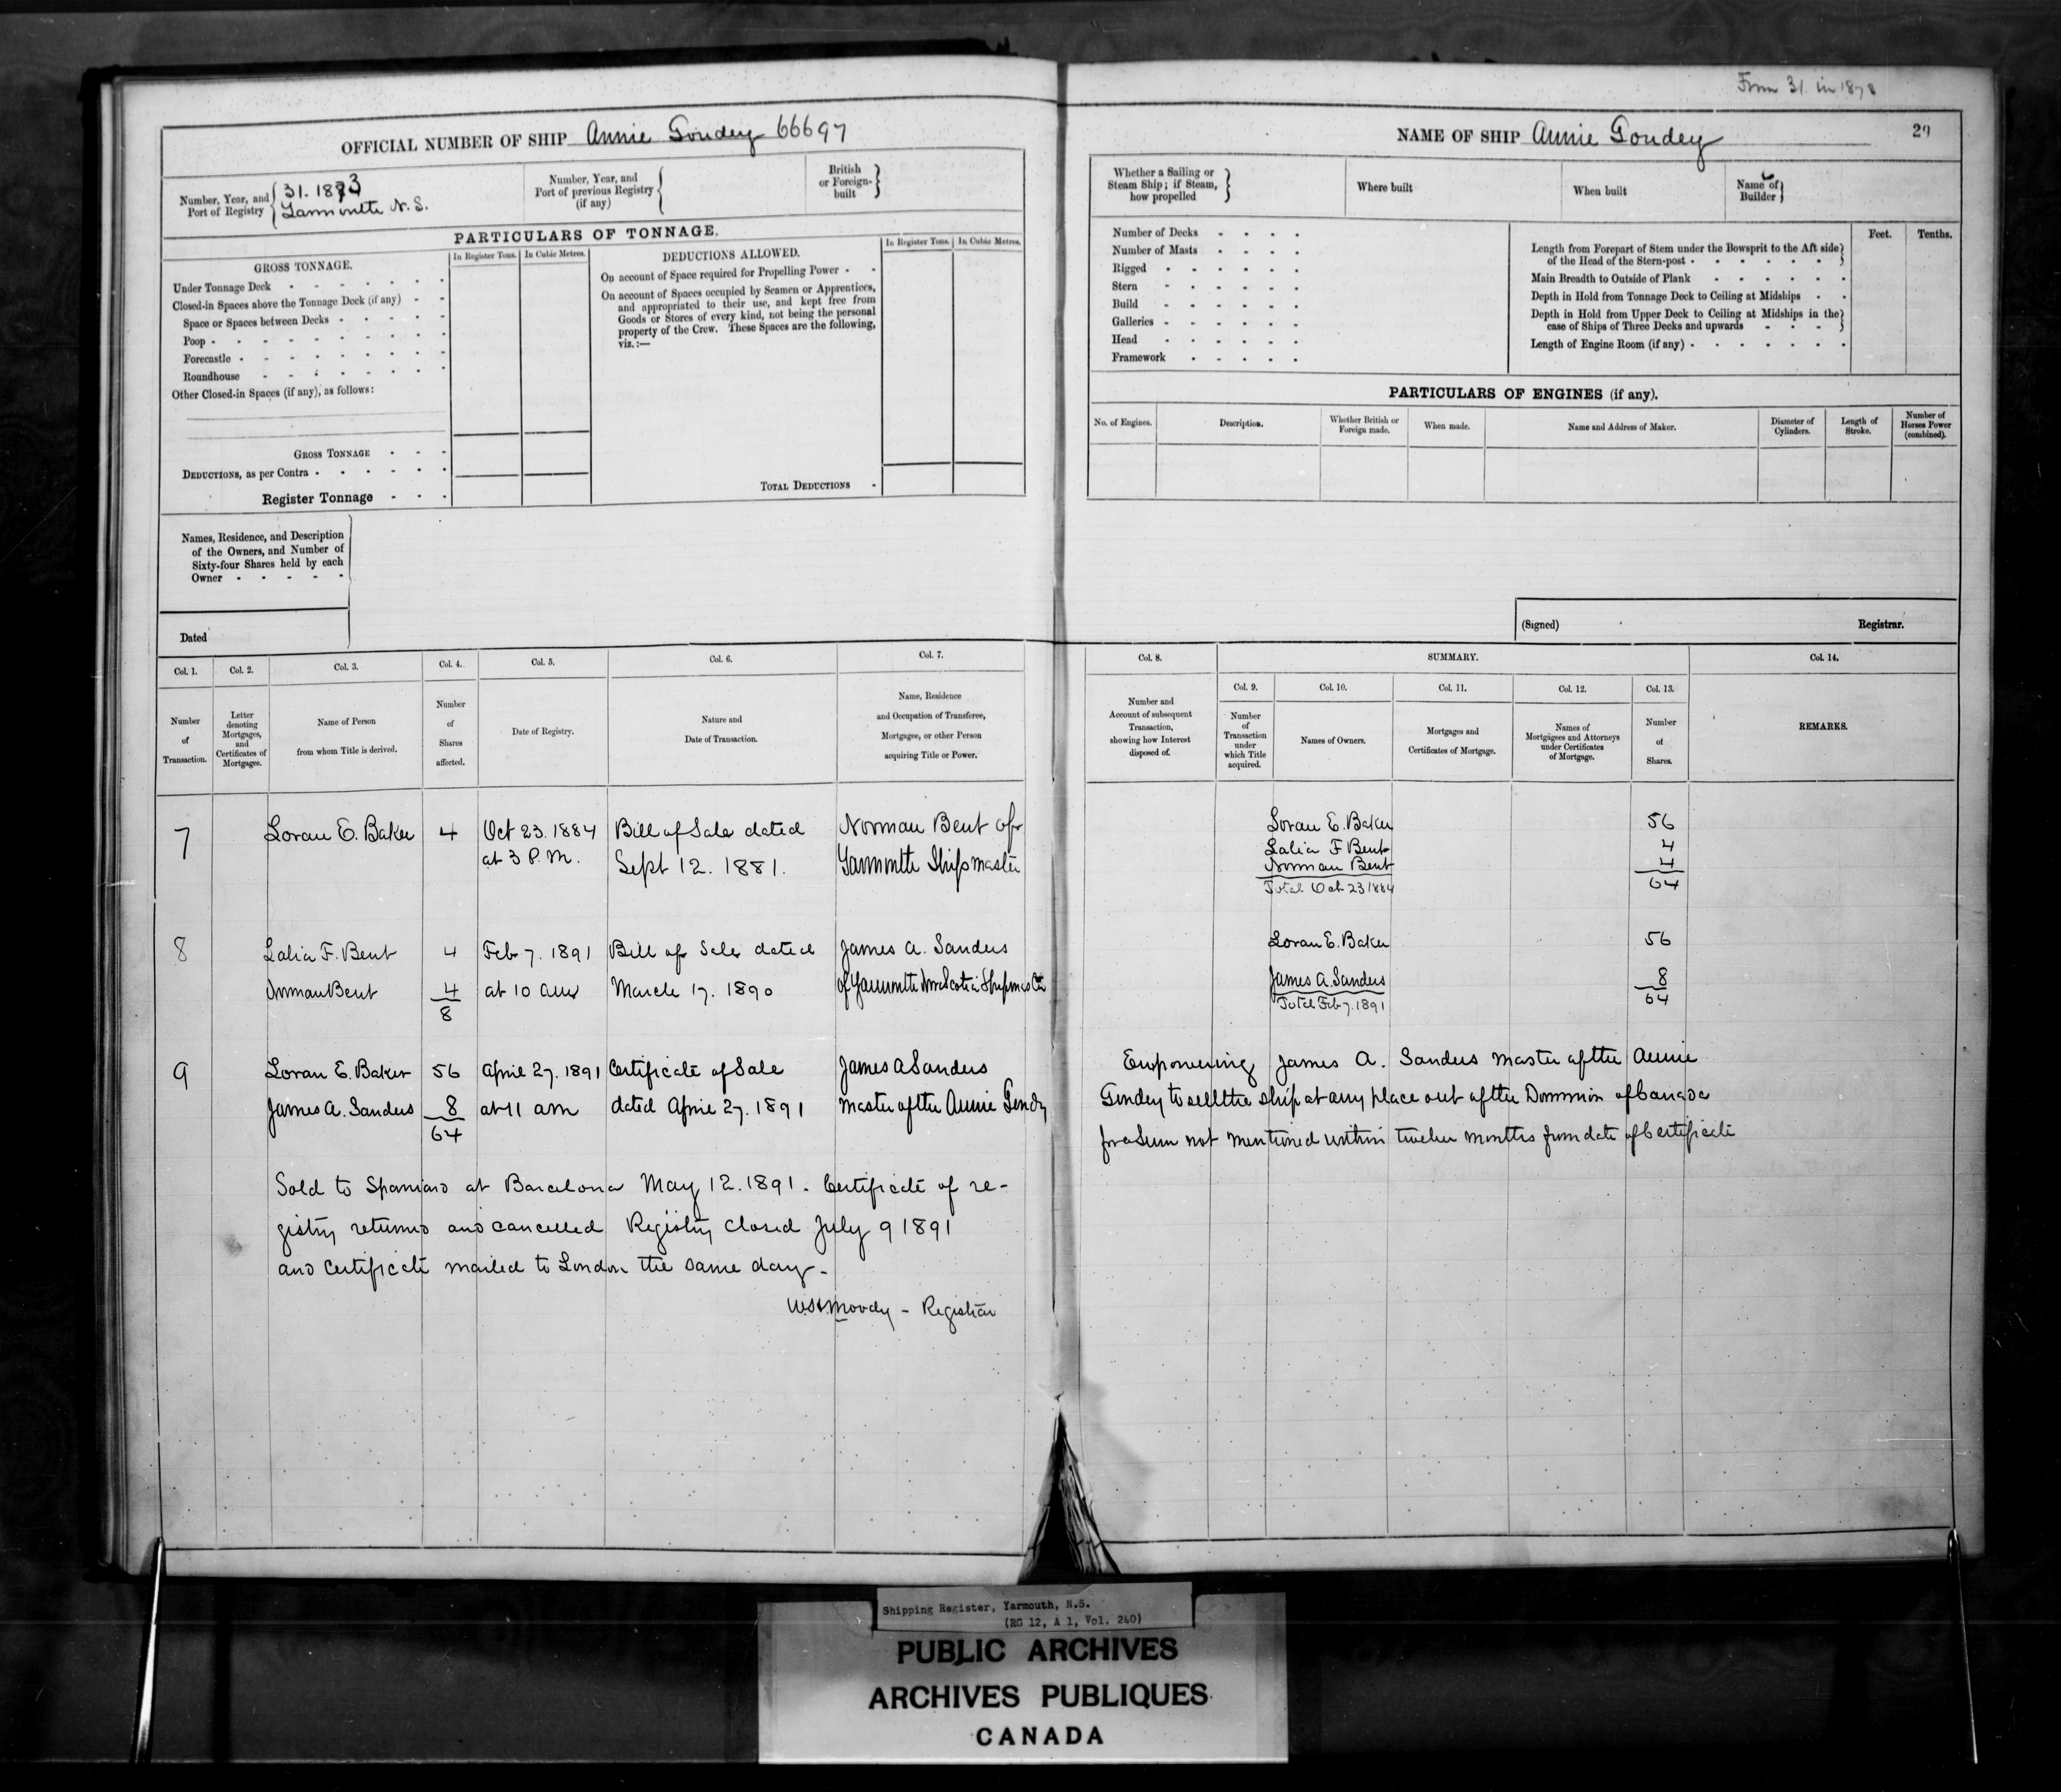 From 31. in 1878
OFFICIAL NUMBER OF SHIP Annie Goudey 66697
Number, Year, and Port of Registry { 31. 1873
Yarmouth N. S.
Number, Year, and Port of previous Registry (if any) {
British or Foreign-built }
PARTICULARS OF TONNAGE.
GROSS TONNAGE.
In Register Tons. In Cubic Metres.
Under Tonnage Deck
Closed-in Spaces above the Tonnage Deck (if any)
Space or Spaces between Decks
Poop
Forecastle
Roundhouse
Other Closed-in Spaces (if any), as follows:
GROSS TONNAGE
DEDUCTIONS, as per Contra
Register Tonnage
DEDUCTIONS ALLOWED.
In Register Tons. In Cubic Metres.
On account of Space required for Propelling Power
On account of Spaces occupied by Seamen or Apprentices,
and appropriated to their use, and kept free from
Goods or Stores of every kind, not being the personal
property of the Crew. These Spaces are the following,
viz.:—
TOTAL DEDUCTIONS
Names, Residence, and Description
of the Owners, and Number of
Sixty-four Shares held by each
Owner
Dated
NAME OF SHIP Annie Goudey
29
Whether a Sailing or
Steam Ship; if Steam,
how propelled }
Where built
When built
Name of
Builder }
Number of Decks
Number of Masts
Rigged
Stern
Build
Galleries
Head
Framework
Feet. Tenths.
Length from Forepart of Stem under the Bowsprit to the Aft side
of the Head of the Stern-post
Main Breadth to Outside of Plank
Depth in Hold from Tonnage Deck to Ceiling at Midships
Depth in Hold from Upper Deck to Ceiling at Midships in the
case of Ships of Three Decks and upwards
Length of Engine Room (if any)
PARTICULARS OF ENGINES (if any).
No. of Engines. Description. Whether British or Foreign made. When made. Name and Address of Maker. Diameter of Cylinders. Length of Stroke. Number of Horses Power (combined).
(Signed) Registrar.
Col. 1. Col. 2. Col. 3. Col. 4. Col. 5. Col. 6. Col. 7.
Number of Transaction.
Letter denoting Mortgages, and Certificates of Mortgages.
Name of Person from whom Title is derived.
Number of Shares affected.
Date of Registry.
Nature and Date of Transaction.
Name, Residence and Occupation of Transferee, Mortgagee, or other Person acquiring Title or Power.
Col. 8. SUMMARY. Col. 14.
Col. 9. Col. 10. Col. 11. Col. 12. Col. 13.
Number and Account of subsequent Transaction, showing how Interest disposed of.
Number of Transaction under which Title acquired.
Names of Owners.
Mortgages and Certificates of Mortgage.
Names of Mortgagees and Attorneys under Certificates of Mortgage.
Number of Shares.
REMARKS.
7 Loran E. Baker 4 Oct 23. 1884 Bill of Sale dated Norman Bent of
at 3 P.M. Sept 12. 1881. Yarmouth Shipmaster
Loran E. Baker 56
Lalia F Bent 4
Norman Bent 4
Total Oct 23 1884 64
8 Lalia F. Bent 4 Feb 7. 1891 Bill of Sale dated James A. Sanders
Norman Bent 4 at 10 am March 17. 1890 of Yarmouth Nova Scotia Shipmaster
8
Loran E. Baker 56
James A. Sanders 8
Total Feb 7. 1891 64
9 Loran E. Baker 56 April 27. 1891 Certificate of Sale James A Sanders
James A. Sanders 8 at 11 am dated April 27. 1891 Master of the Annie Goudey
64
Empowering James A. Sanders Master of the Annie
Goudey to sell the ship at any place out of the Dominion of Canada
for a Sum not mentioned within twelve months from date of Certificate
Sold to Spaniard at Barcelona May 12. 1891. Certificate of re-
gistry returned and cancelled Registry closed July 9 1891
and Certificate mailed to London the same day -
Moody - Registrar
Shipping Register, Yarmouth, N.S.
(RG 12, A 1, Vol. 240)
PUBLIC ARCHIVES
ARCHIVES PUBLIQUES
CANADA